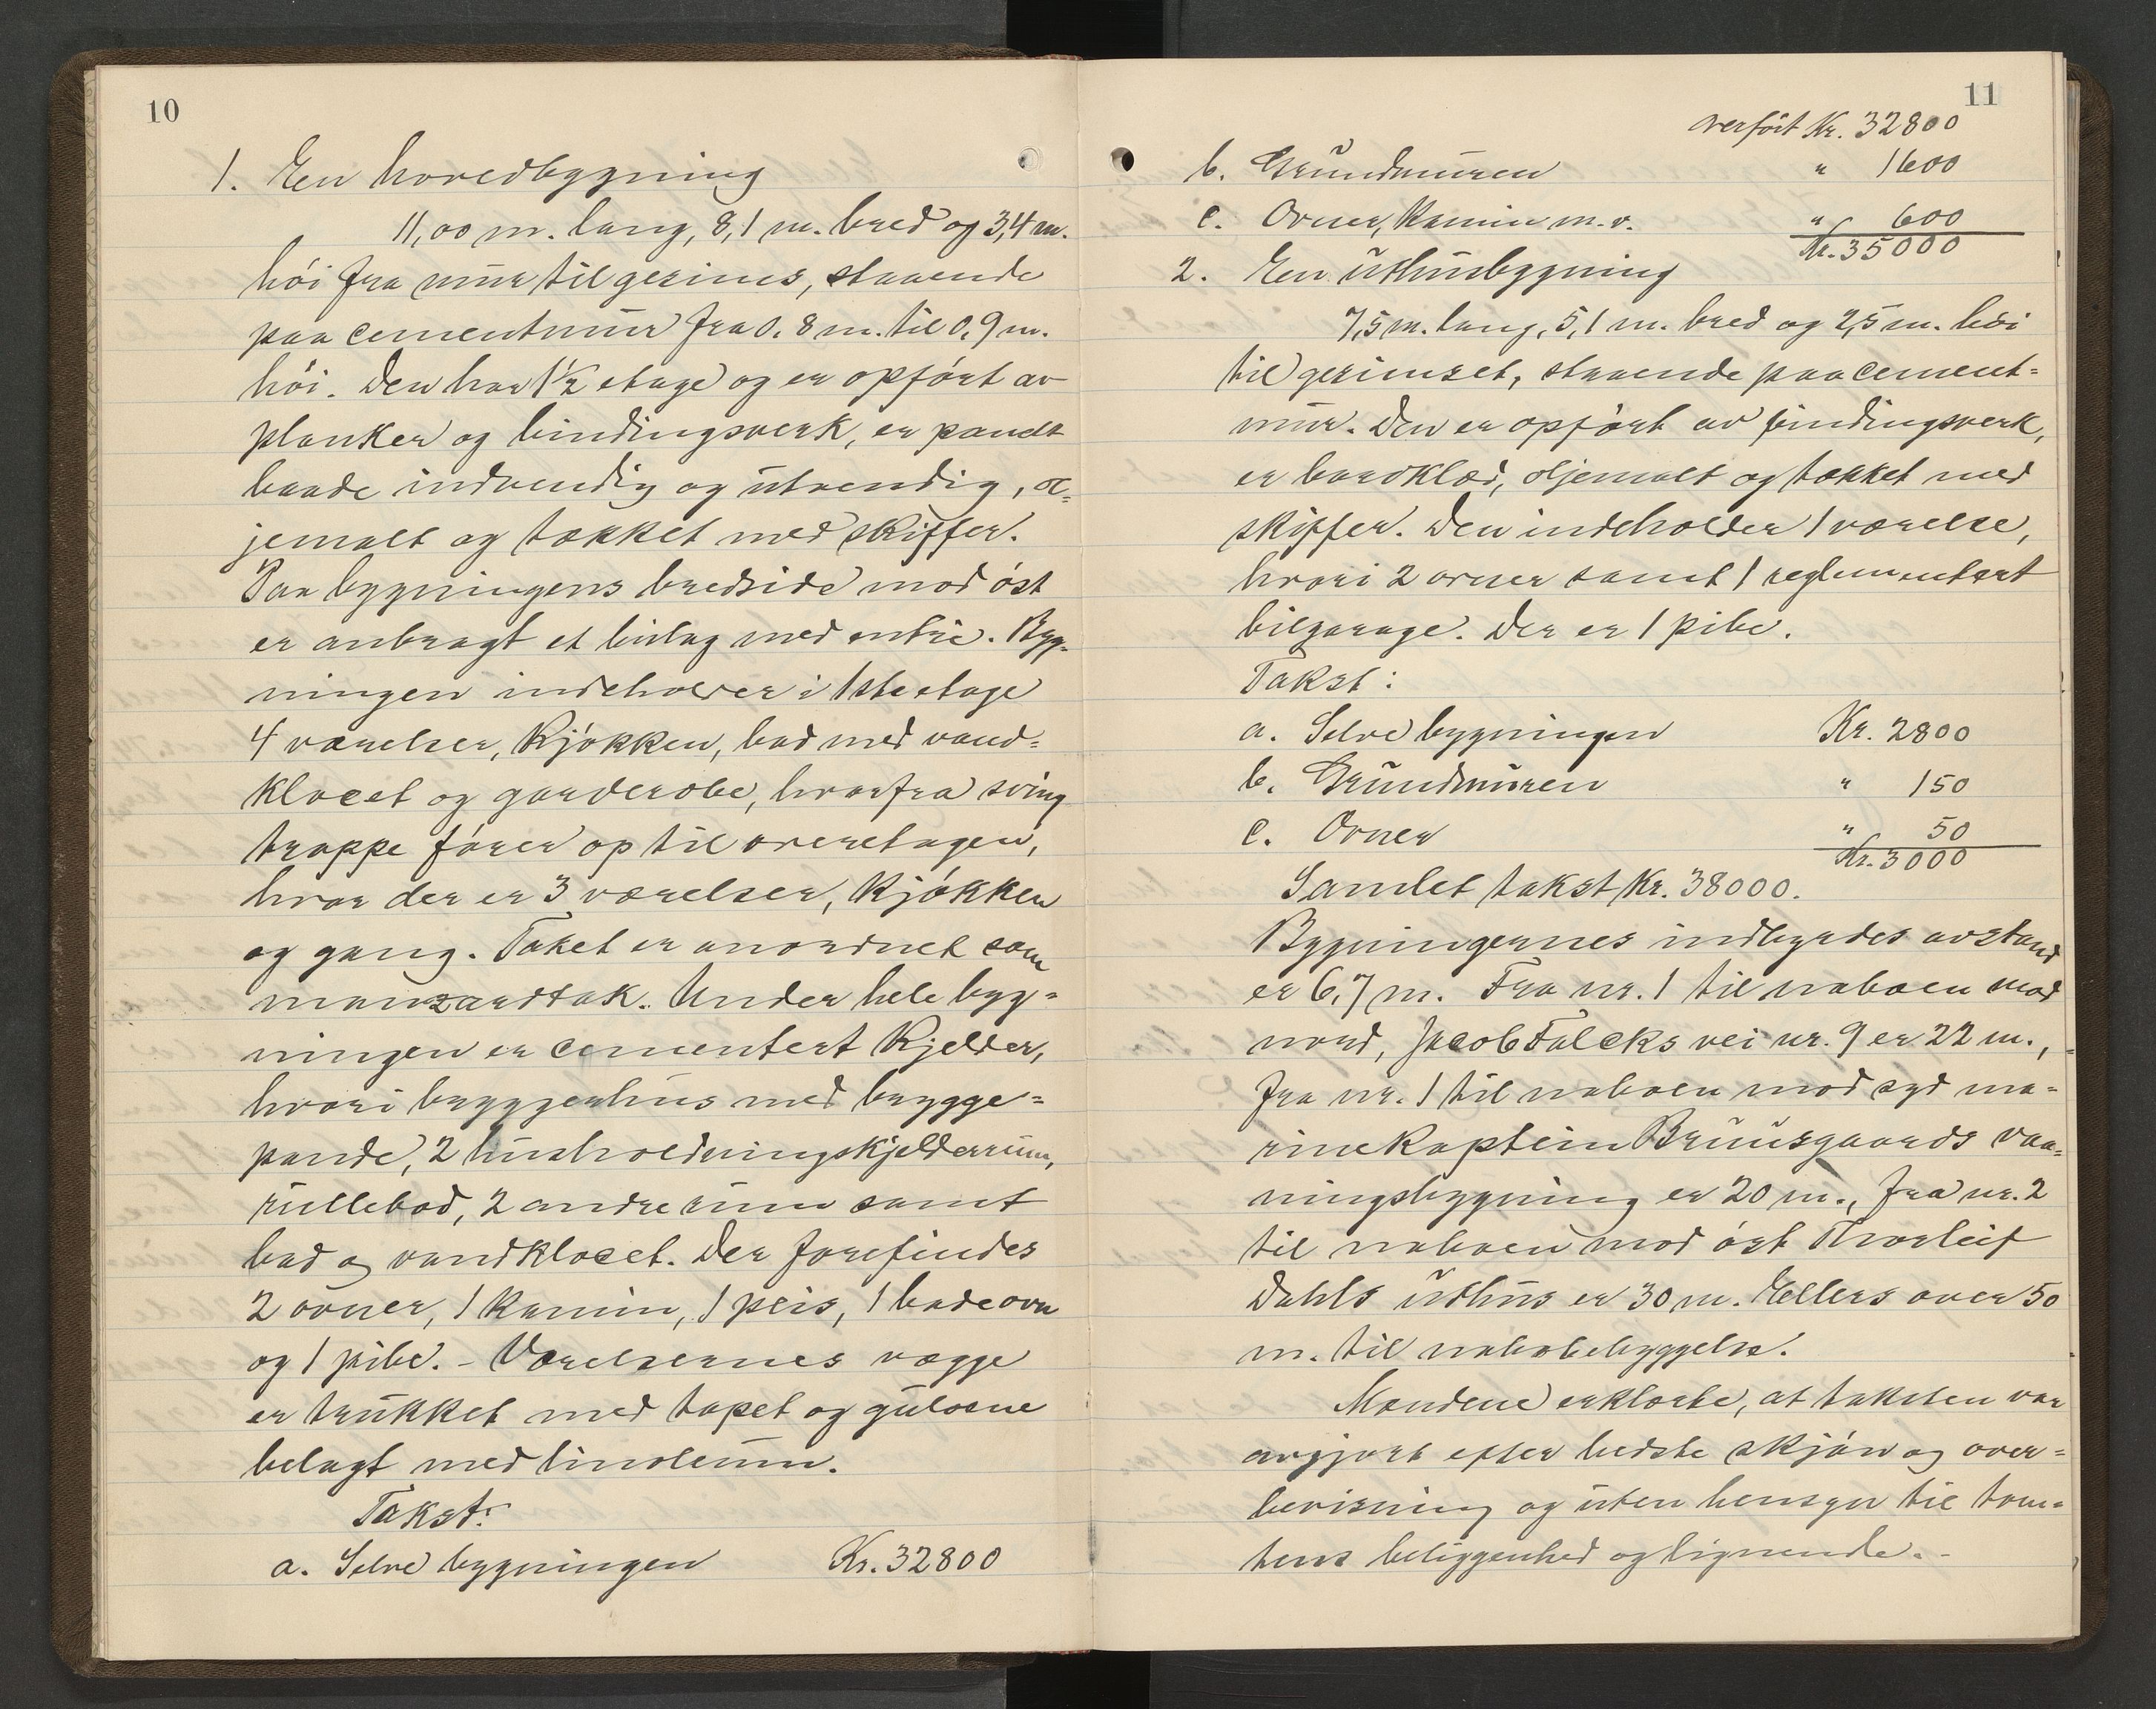 10
1. En hovedbygning
11,00 m. lang, 8,1 m. bred og 3,4 m.
höi fra mur til gesims, staaende
paa cementmur fra 0,8 m. til 0,9 m.
höi. Den har 1½ etage og er opfört av
planker og bindingsverk, er panelt
baade indvendig og utvendig, ol-
jemalt og tækket med skiffer.
Paa bygningens bredside mod öst
er anbragt et bislag med entrée. Byg-
ningen indeholder i 1ste etage
4 værelser, kjökken, bad med vand=
klocet og garderobe, hvorfra sving
trappe förer op til overetagen,
hvor der er 3 værelser, kjökken
og gang. Taket er anordnet som
mansardtak. Under hele byg=
ningen er cementert kjelder,
hvori bryggerhus med brygge=
pande, 2 husholdningskjelderrum,
rullebod, 2 andre rum samt
bad og vandklocet. Der forefindes
2 ovner, 1 kamin, 1 peis, 1 badeovn
og 1 pibe. - Værelsernes vægge
er trukket med tapet og gulvene
belagt med linoleum.
Takst:
a. Selve bygningen Kr. 32800
11
overfört Kr. 32800
b. Grundmuren " 1600
c. Ovner, Kamin m.v. " 600
Kr. 35000
2. En uthusbygning
7,5 m. lang, 5,1 m. bred og 2,5 m. höi
til gesimset, staaende paa cement=
mur. Den er opfört av bindingsverk,
er bordklæd, oljemalt og tækket med
skiffer. Den indeholder 1 værelse,
hvori 2 ovner samt 1 reglementert
bilgarage. Der er 1 pibe.
Takst:
a. Selve bygningen Kr. 2800
b. Grundmuren " 150
c. Ovner " 50
Kr. 3000
Samlet takst Kr. 38000.
Bygningernes indbyrdes avstand
er 6,7 m. Fra nr. 1 til naboen mod
nord, Jacob Falcks vei nr. 9 er 22 m.,
fra nr. 1 til naboen mod syd ma=
rinekaptein Bruusgaards vaa=
ningsbygning er 20 m., fra nr. 2
til naboen mod öst Thorleif
Dahls uthus er 30 m. Ellers over 50
m. til nabobebyggelse.
Mændene erklærte, at taksten var
avgjort efter bedste skjön og over=
bevisning og uten hensyn til tom=
tens beliggenhed og lignende. -